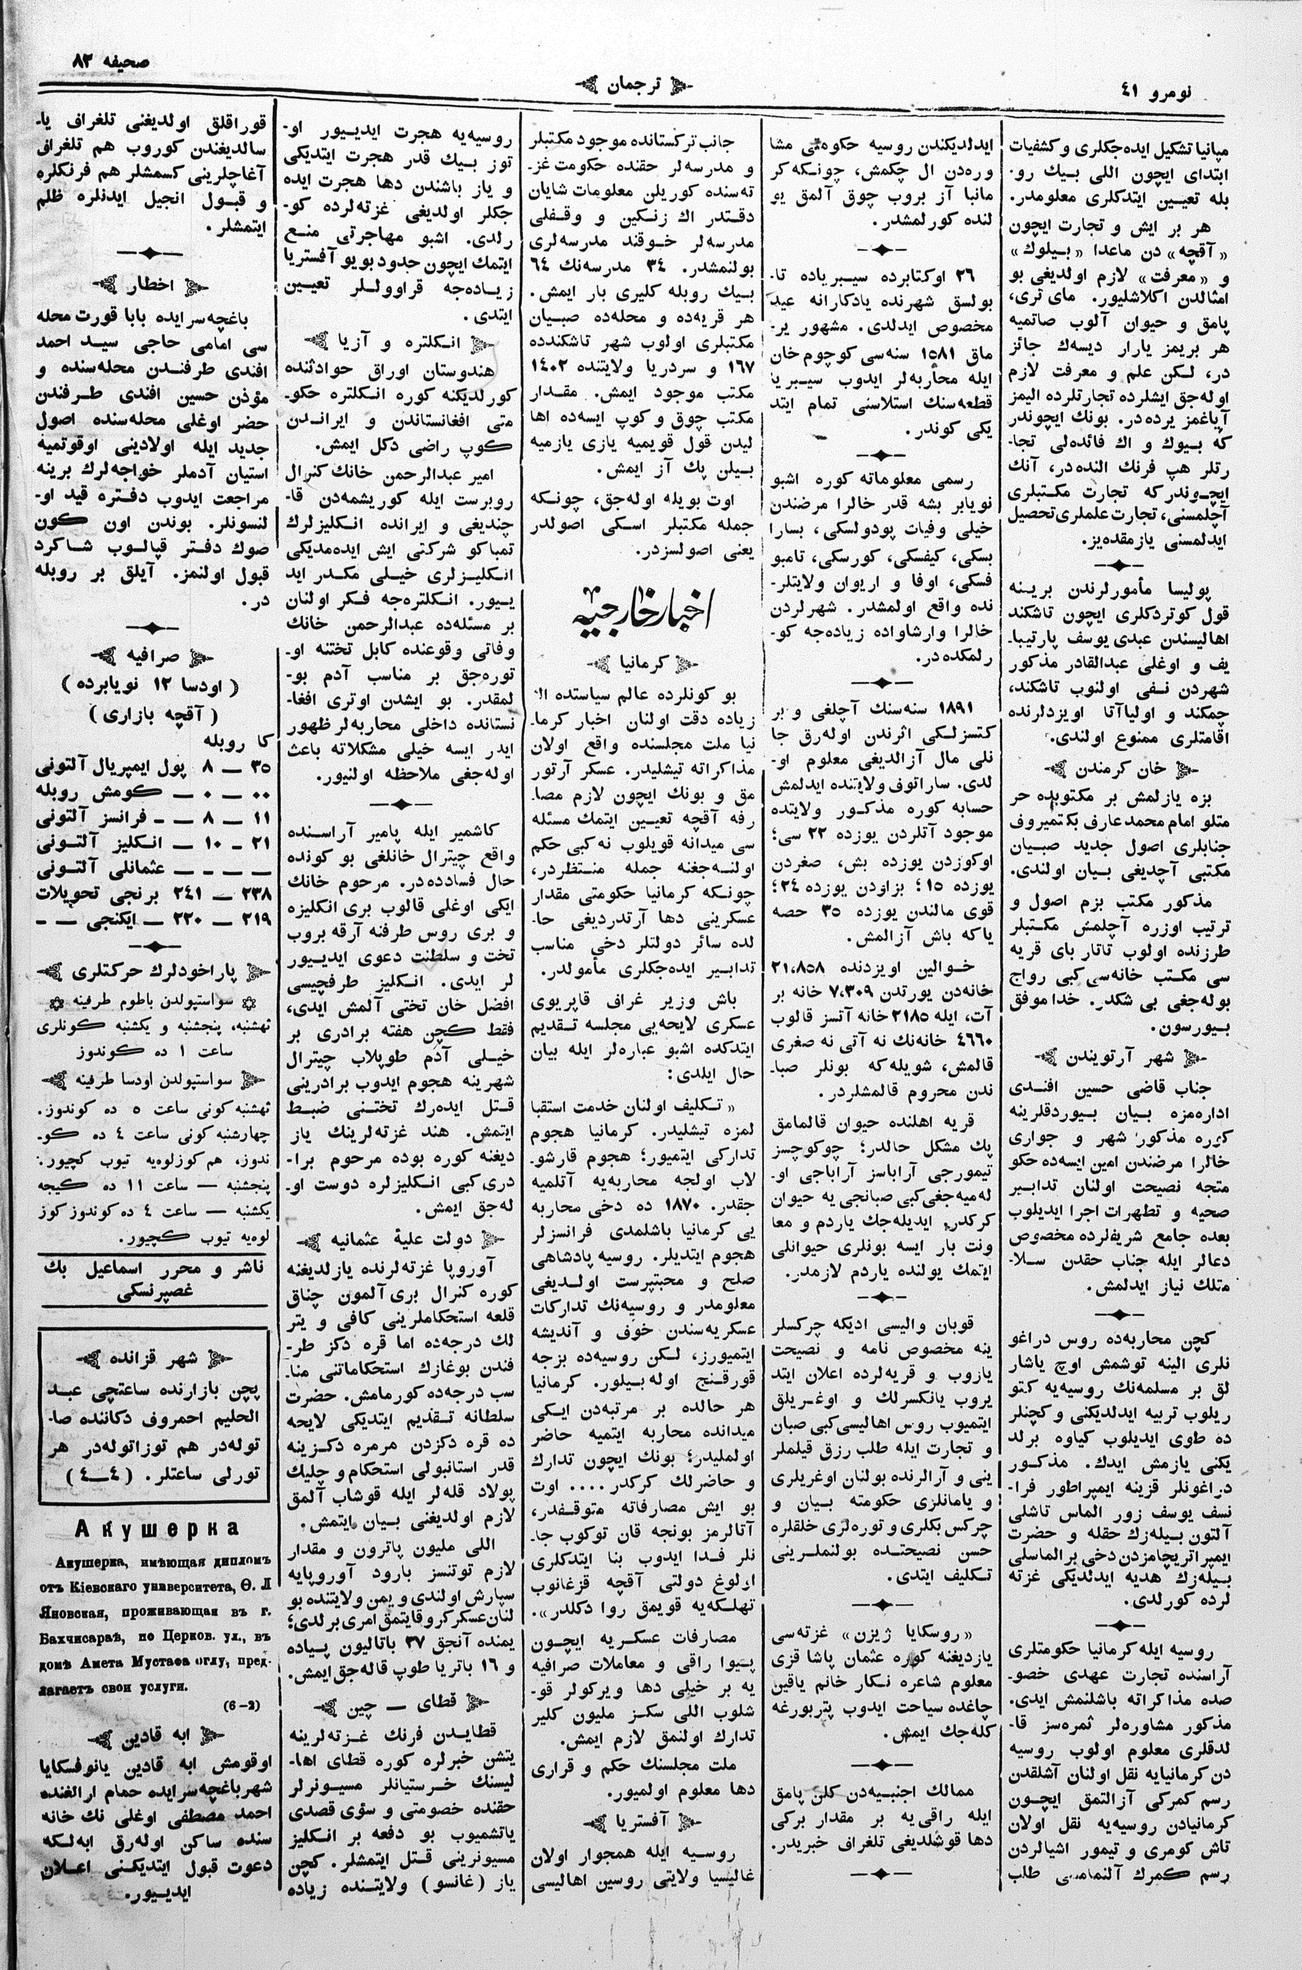 نومرو ٤١
ترجمان
صحیفه ٨٣
مپانیا تشکیل ایده‌جکلری و کشفیات
ابتدای ایچون اللی بیك رو-
بله تعیین ایتدکلری معلومدر.
هر بر ایش و تجارت ایچون
«آقچه» دن ماعدا «بیلوك»
و «معرفت» لازم اولدیغی بو
امثالدن اکلاشلیور. مای تری،
پامق و حیوان آلوب صاتمیه
هر بریمز یارار دیسه‌ك جائز
در، لکن علم و معرفت لازم
اوله‌جق ایشلرده تجارتلرده الیمز
آیاغمز یرده‌در. بونك ایچوندر
که بیوك و اك فائده‌لی تجا-
رتلر هپ فرنك النده‌در، آنك
ایچوندرکه تجارت مکتبلری
آچلمسنی، تجارت علملری تحصیل
ایدلمسنی یازمقده‌یز.
پولیسا مأمورلرندن برینه
قول کوتردکلری ایچون تاشکند
اهالیسندن عبدی یوسف پارتیبا-
یف و اوغلی عبدالقادر مذکور
شهردن نفی اولنوب تاشکند،
چمکند و اولیاآتا اویزدلرنده
اقامتلری ممنوع اولندی.
خان کرمندن
بزه یازلمش بر مکتوبده حر
متلو امام محمد عارف بکتمیروف
جنابلری اصول جدید صبیان
مکتبی آچدیغی بیان اولندی.
مذکور مکتب بزم اصول و
ترتیب اوزره آچلمش مکتبلر
طرزنده اولوب تاتار بای قریه
سی مکتب خانه‌سی کبی رواج
بوله‌جغی بی شکدر. خدا موفق
بیورسون.
شهر آرتویندن
جناب قاضی حسین افندی
اداره‌مزه بیان بیوردقلرینه
کوره مذکور شهر و جواری
خالرا مرضندن امین ایسه‌ده حکو
متجه نصیحت اولنان تدابیر
صحیه و تطهرات اجرا ایدیلوب
بعده جامع شریفلرده مخصوص
دعالر ایله جناب حقدن سلا-
متلك نیاز ایدلمش.
کچن محاربه‌ده روس دراغو
نلری الینه توشمش اوچ یاشار
لق بر مسلمه‌نك روسیه‌یه کتو
ریلوب تربیه ایدلدیکنی و کچنلر
ده طوی ایدیلوب کیاوه برلد
یکنی یازمش ایدك. مذکور
دراغونلر قزینه ایمپراطور فرا-
نسف یوسف زور الماس تاشلی
آلتون بیله‌زك حقله و حضرت
ایمپراتریچامزدن دخی بر الماسلی
بیله‌زك هدیه ایدلدیکی غزته
لرده کورلدی.
روسیه ایله کرمانیا حکومتلری
آراسنده تجارت عهدی خصو-
صده مذاکراته باشلنمش ایدی.
مذکور مشاوره‌لر ثمره‌سز قا-
لدقلری معلوم اولوب روسیه
دن کرمانیایه نقل اولنان آشلقدن
رسم کمرکی آزالتمق ایچون
کرمانیادن روسیه‌یه نقل اولان
تاش کومری و تیمور اشیالردن
رسم کمرك آلنمامسی طلب
ایدلدیکندن روسیه حکومتی مشا
وره‌دن ال چکمش، چونکه کر
مانیا آز بروب چوق آلمق یو
لنده کورلمشدر.
٢٦ اوکتابرده سیبریاده تا-
بولسق شهرنده یادکارانه عید
مخصوص ایدلدی. مشهور یر-
ماق ١٥٨١ سنه‌سی کوچوم خان
ایله محاربه‌لر ایدوب سیبریا
قطعه‌سنك استلاسنی تمام ایتد
یکی کوندر.
رسمی معلوماته کوره اشبو
نویابر بشه قدر خالرا مرضندن
خیلی وفیات پودولسکی، بسارا
بسکی، کیفسکی، کورسکی، تامبو
فسکی، اوفا و اریوان ولایتلر-
نده واقع اولمشدر. شهرلردن
خالرا وارشاواده زیاده‌جه کو-
رلمکده‌در.
١٨٩١ سنه‌سنك آچلغی و بر
کتسزلکی اثرندن اوله‌رق جا
نلی مال آزالدیغی معلوم او-
لدی. ساراتوف ولایتنده ایدلمش
حسابه کوره مذکور ولایتده
موجود آتلردن یوزده ٢٢ سی؛
اوکوزدن یوزده بش، صغردن
یوزده ١٥؛ بزاودن یوزده ٢٤؛
قوی مالندن یوزده ٣٥ حصه
یاکه باش آزالمش.
خوالین اویزدنده ٢١،٨٥٨
خانه‌دن یورتدن ٧،٣٠٩ خانه بر
آت، ایله ٢١٨٥ خانه آتسز قالوب
٤٦٦٠ خانه‌نك نه آتی نه صغری
قالمش، شویله‌که بونلر صبا-
ندن محروم قالمشلردر.
قریه اهلنده حیوان قالمامق
پك مشکل حالدر؛ چوکوچسز
تیمورجی آراباسز آراباجی او-
له‌میه‌جغی کبی صبانجی یه حیوان
کرکدر. ایدیله‌جك یاردم و معا
ونت بار ایسه بونلری حیوانلی
ایتمك یولنده یاردم لازمدر.
قوبان والیسی ادیکه چرکسلر
ینه مخصوص نامه و نصیحت
یازوب و قریه‌لرده اعلان ایتد
یروب یانکسرلك و اوغریلق
ایتمیوب روس اهالیسی کبی صبان
و تجارت ایله طلب رزق قیلملر
ینی و آرالرنده بولنان اوغریلری
و یامانلری حکومته بیان و
چرکس بکلری و توره‌لری خلقلره
حسن نصیحتده بولنملرینی
تکلیف ایتدی.
«روسکایا ژیزن» غزته‌سی
یازدیغنه کوره عثمان پاشا قزی
معلوم شاعره نکار خانم یاقین
چاغده سیاحت ایدوب پتربورغه
کله‌جك ایمش.
ممالك اجنبیه‌دن کلن پامق
ایله راقی‌یه بر مقدار برکی
دها قوشلدیغی تلغراف خبریدر.
جانب ترکستانده موجود مکتبلر
و مدرسه‌لر حقنده حکومت غز-
ته‌سنده کوریلن معلومات شایان
دقتدر اك زنکین و وقفلی
مدرسه‌لر خوقند مدرسه‌لری
بولنمشدر. ٣٤ مدرسه‌نك ٦٤
بیك روبله کلیری بار ایمش.
هر قریه‌ده و محله‌ده صبیان
مکتبلری اولوب شهر تاشکندده
١٦٧ و سردریا ولایتنده ١٤٠٢
مکتب موجود ایمش. مقدار
مکتب چوق و کوپ ایسه‌ده اها
لیدن قول قویمیه یازی یازمیه
بیلن پك آز ایمش.
اوت بویله اوله‌جق، چونکه
جمله مکتبلر اسکی اصولدر
یعنی اصولسزدر.
اخبار خارجیه
کرمانیا
بو کونلرده عالم سیاستده ال
زیاده دقت اولنان اخبار کرما-
نیا ملت مجلسنده واقع اولان
مذاکراته تیشلیدر. عسکر آرتور
مق و بونك ایچون لازم مصا-
رفه آقچه تعیین ایتمك مسئله
سی میدانه قویلوب نه کبی حکم
اولنه‌جغنه جمله منتظردر،
چونکه کرمانیا حکومتی مقدار
عسکرینی دها آرتدردیغی حا-
لده سائر دولتلر دخی مناسب
تدابیر ایده‌جکلری مأمولدر.
باش وزیر غراف قاپریوی
عسکری لایحه‌یی مجلسه تقدیم
ایتدکده اشبو عباره‌لر ایله بیان
حال ایلدی:
«تکلیف اولنان خدمت استقبا
لمزه تیشلیدر. کرمانیا هجوم
تدارکی ایتمیور؛ هجوم قارشو-
لاب اولجه محاربه‌یه آتلمیه
جقدر. ١٨٧٠ ده دخی محاربه
یی کرمانیا باشلمدی فرانسزلر
هجوم ایتدیلر. روسیه پادشاهی
صلح و محبتپرست اولدیغی
معلومدر و روسیه‌نك تدارکات
عسکریه‌سندن خوف و آندیشه
ایتمیورز، لکن روسیه‌ده بزجه
قورقنج اوله‌بیلور. کرمانیا
هر حالده بر مرتبه‌دن ایکی
میدانده محاربه ایتمیه حاضر
اولملیدر؛ بونك ایچون تدارك
و حاضرلك کرکدر.... اوت
بو ایش مصارفاته متوقفدر،
آتالرمز بونجه قان توکوب جا-
نلر فدا ایدوب بنا ایتدکلری
اولوغ دولتی آقچه قزغانوب
تهلکه‌یه قویمق روا دکلدر».
مصارفات عسکریه ایچون
پیوا راقی و معاملات صرافیه
یه بر خیلی دها ویرکولر قو-
شلوب اللی سکز ملیون کلیر
تدارك اولنمق لازم ایمش.
ملت مجلسنك حکم و قراری
دها معلوم اولمیور.
آفستریا
روسیه ایله همجوار اولان
غالیسیا ولایتی روسین اهالیسی
روسیه‌یه هجرت ایدیور او-
توز بیك قدر هجرت ایتدیکی
و یاز باشندن دها هجرت ایده
جکلر اولدیغی غزته‌لرده کو-
رلدی. اشبو مهاجرتی منع
ایتمك ایچون حدود بویو آفستریا
زیاده‌جه قراوولر تعیین
ایتدی.
انکلتره و آزیا
هندوستان اوراق حوادثنده
کورلدیکنه کوره انکلتره حکو-
متی افغانستاندن و ایراندن
کوپ راضی دکل ایمش.
امیر عبدالرحمن خانك کنرال
روبرست ایله کوریشمه‌دن قا-
چندیغی و ایرانده انکلیزلرك
تمباکو شرکتی ایش ایده‌مدیکی
انکلیزلری خیلی مکدر اید
ییور. انکلتره‌جه فکر اولنان
بر مسئله‌ده عبدالرحمن خانك
وفاتی وقوعنده کابل تختنه او-
توره‌جق بر مناسب آدم بو-
لمقدر. بو ایشدن اوتری افغا-
نستانده داخلی محاربه‌لر ظهور
ایدر ایسه خیلی مشکلاته باعث
اوله‌جغی ملاحظه اولنیور.
کاشمیر ایله پامیر آراسنده
واقع چیترال خانلغی بو کونده
حال فسادده‌در. مرحوم خانك
ایکی اوغلی قالوب بری انکلیزه
و بری روس طرفنه آرقه بروب
تخت و سلطنت دعوی ایدیور
لر ایدی. انکلیز طرفچیسی
افضل خان تختی آلمش ایدی،
فقط کچن هفته برادری بر
خیلی آدم طوپلاب چیترال
شهرینه هجوم ایدوب برادرینی
قتل ایده‌رك تختنی ضبط
ایتمش. هند غزته‌لرینك یاز
دیغنه کوره بوده مرحوم برا-
دری کبی انکلیزلره دوست او-
له‌جق ایمش.
دولت علیهٔ عثمانیه
آوروپا غزته‌لرنده یازلدیغنه
کوره کنرال بری آلمون چناق
قلعه استحکاملرینی کافی و یتر
لك درجه‌ده اما قره دکز طر-
فندن بوغازك استحکاماتنی منا-
سب درجه‌ده کورمامش. حضرت
سلطانه تقدیم ایتدیکی لایحه
ده قره دکزدن مرمره دکزینه
قدر استانبولی استحکام و چلیك
پولاد قله‌لر ایله قوشاب آلمق
لازم اولدیغنی بیان ایتمش.
اللی ملیون پاترون و مقدار
لازم توتنسز بارود آوروپایه
سپارش اولندی و یمن ولایتنده بو
لنان عسکر کرو قایتمق امری برلدی؛
یمنده آنجق ٣٧ باتالیون پیاده
و ١٦ باتریا طوپ قاله‌جق ایمش.
قطای — چین
قطایدن فرنك غزته‌لرینه
یتشن خبرلره کوره قطای اها-
لیسنك خرستیانلر مسیونرلر
حقنده خصومتی و سؤی قصدی
یاتشمیوب بو دفعه بر انکلیز
مسیونرینی قتل ایتمشلر. کچن
یاز (غانسو) ولایتنده زیاده
قوراقلق اولدیغنی تلغرافی یا-
سالدیغندن کوروب هم تلغرافی
آغاچلرینی کسمشلر هم فرنکلره
و قبول انجیل ایدنلره ظلم
ایتمشلر.
اخطار
باغچه‌سرایده بابا قورت محله
سی امامی حاجی سید احمد
افندی طرفندن محله‌سنده و
مؤذن حسین افندی طرفندن
حضر اوغلی محله‌سنده اصول
جدید ایله اولادینی اوقوتمیه
استیان آدملر خواجه‌لرك برینه
مراجعت ایدوب دفتره قید او-
لنسونلر. بوندن اون کون
صوك دفتر قپالوب شاکرد
قبول اولنمز. آیلق بر روبله
در.
صرافیه
(اودسا ١٢ نویابرده)
(آقچه بازاری)
کا روبله
٣٥ — ٨ پول ایمپریال آلتونی
٠٠ — ٠ — کومش روبله
١١ — ٨ — - فرانسز آلتونی
٢١ - ١٠ — انکلیز آلتونی
— — — — عثمانلی آلتونی
٢٣٨ — ٢٤١ برنجی تحویلات
٢١٩ — ٢٢٠ — ایکنجی — -
پاراخودلرك حرکتلری
سواستپولدن باطوم طرفینه
ثهشنبه، پنجشنبه و یکشنبه کونلری
ساعت ١ ده کوندوز
سواستپولدن اودسا طرفینه
ثهشنبه کونی ساعت ٥ ده کوندوز.
چهارشنبه کونی ساعت ٤ ده کو-
ندوز، هم کوزلوه‌یه تیوب کچیور:
پنجشنبه — ساعت ١١ ده کیجه
یکشنبه — ساعت ٤ ده کوندوز کوز
لوه‌یه تیوب کچیور.
ناشر و محرر اسماعیل بك
غصپرنسکی
شهر قزانده
پچن بازارنده ساعتچی عبد
الحلیم احمروف دکاننده صا-
توله‌در هم توزاتوله‌در هر
تورلی ساعتلر. (٤—٤)
Акушерка
Акушерка, имѣющая дипломъ
отъ Кіевскаго университета, Ѳ. Л
Яновская, проживающая въ г.
Бахчисараѣ, по Церков. ул., въ
домѣ Амета Мустафа оглу, пред-
лагаетъ свои услуги.
(6-2)
ابه قادین
اوقومش ابه قادین یانوفسکایا
شهر باغچه‌سرایده حمام ارالغنده
احمد مصطفی اوغلی نك خانه
سنده ساکن اوله‌رق ابه‌لکه
دعوت قبول ایتدیکنی اعلان
ایدییور.